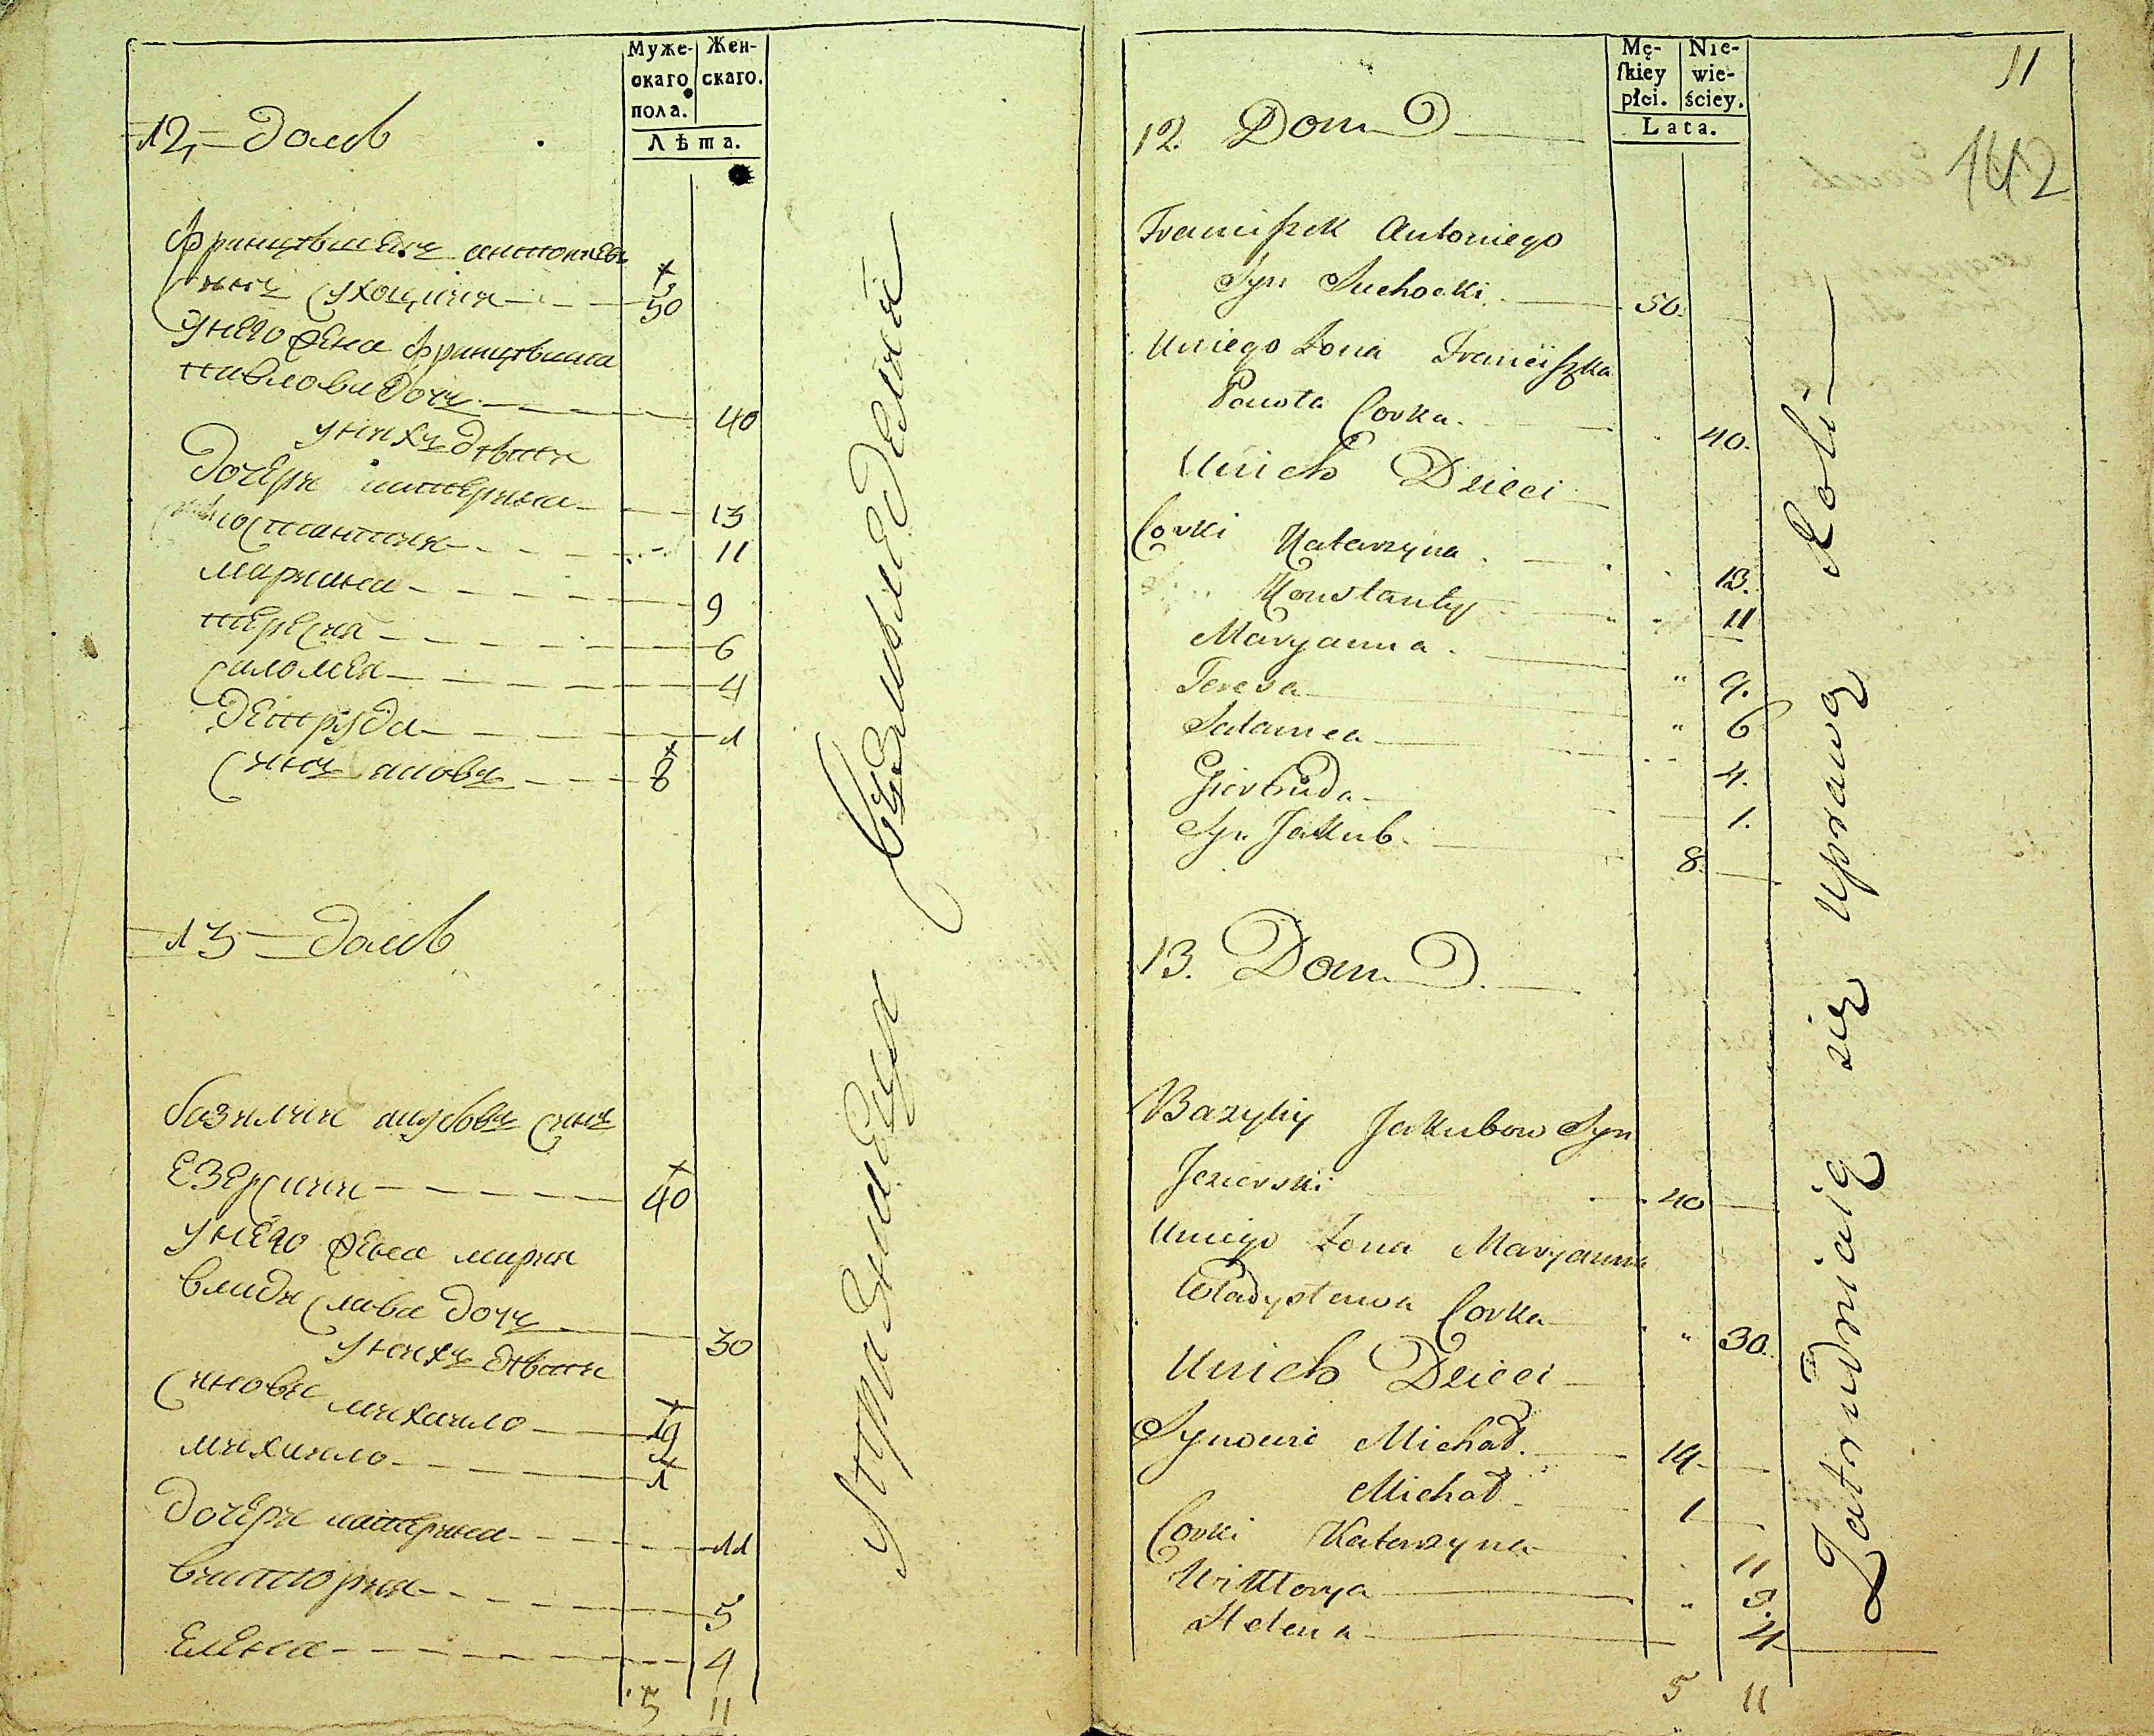 Муже-
скаго
пола.
Жен-
скаго.
Лѣта.
12, домъ
Францѣшекъ антониевъ
сынъ Сухоцкии 50
Унего жена францѣшка
павлова дочъ 40
унихъ дѣти
Дочери катерина 13
константия 11
мариана 9
тересия 6
саломея 4
Дентруда 1
сынъ яковъ 8
13 домъ
базилии якубовъ сынъ
езерскии 40
Унего жена мария
владислава дочъ 30
унихъ дѣти
сыновя михаило 19
михаило 1
Дочери катерина 11
виктория 5
елена 4
5 11
Упражняеца Съ земледелия
Mę-
ſkiey
płci.
Nie-
wie-
ściey.
Lata.
11
142
12. Dom
Franciſzek Antoniego
Syn Suchocki 50.
Uniego Zona Franciſzka
Pawła Corka. 40.
Unich Dzieci
Corki Katarzyna 13.
Konstanty 11
Maryanna 9.
Teresa 6
Salamea 4.
Giertruda 1.
Syn Jakub. 8.
13. Dom
Bazyliy Jakubow Syn
Jezierski 40
Uniego Zona Maryanna
Władysława Corka 30.
Unich Dzieci
Synowie Michał. 19
Michał 1
Corki Katarzyna 11
Wiktorya 5.
Helena 4
5 11
Zatrudniaią się uprawą Roli